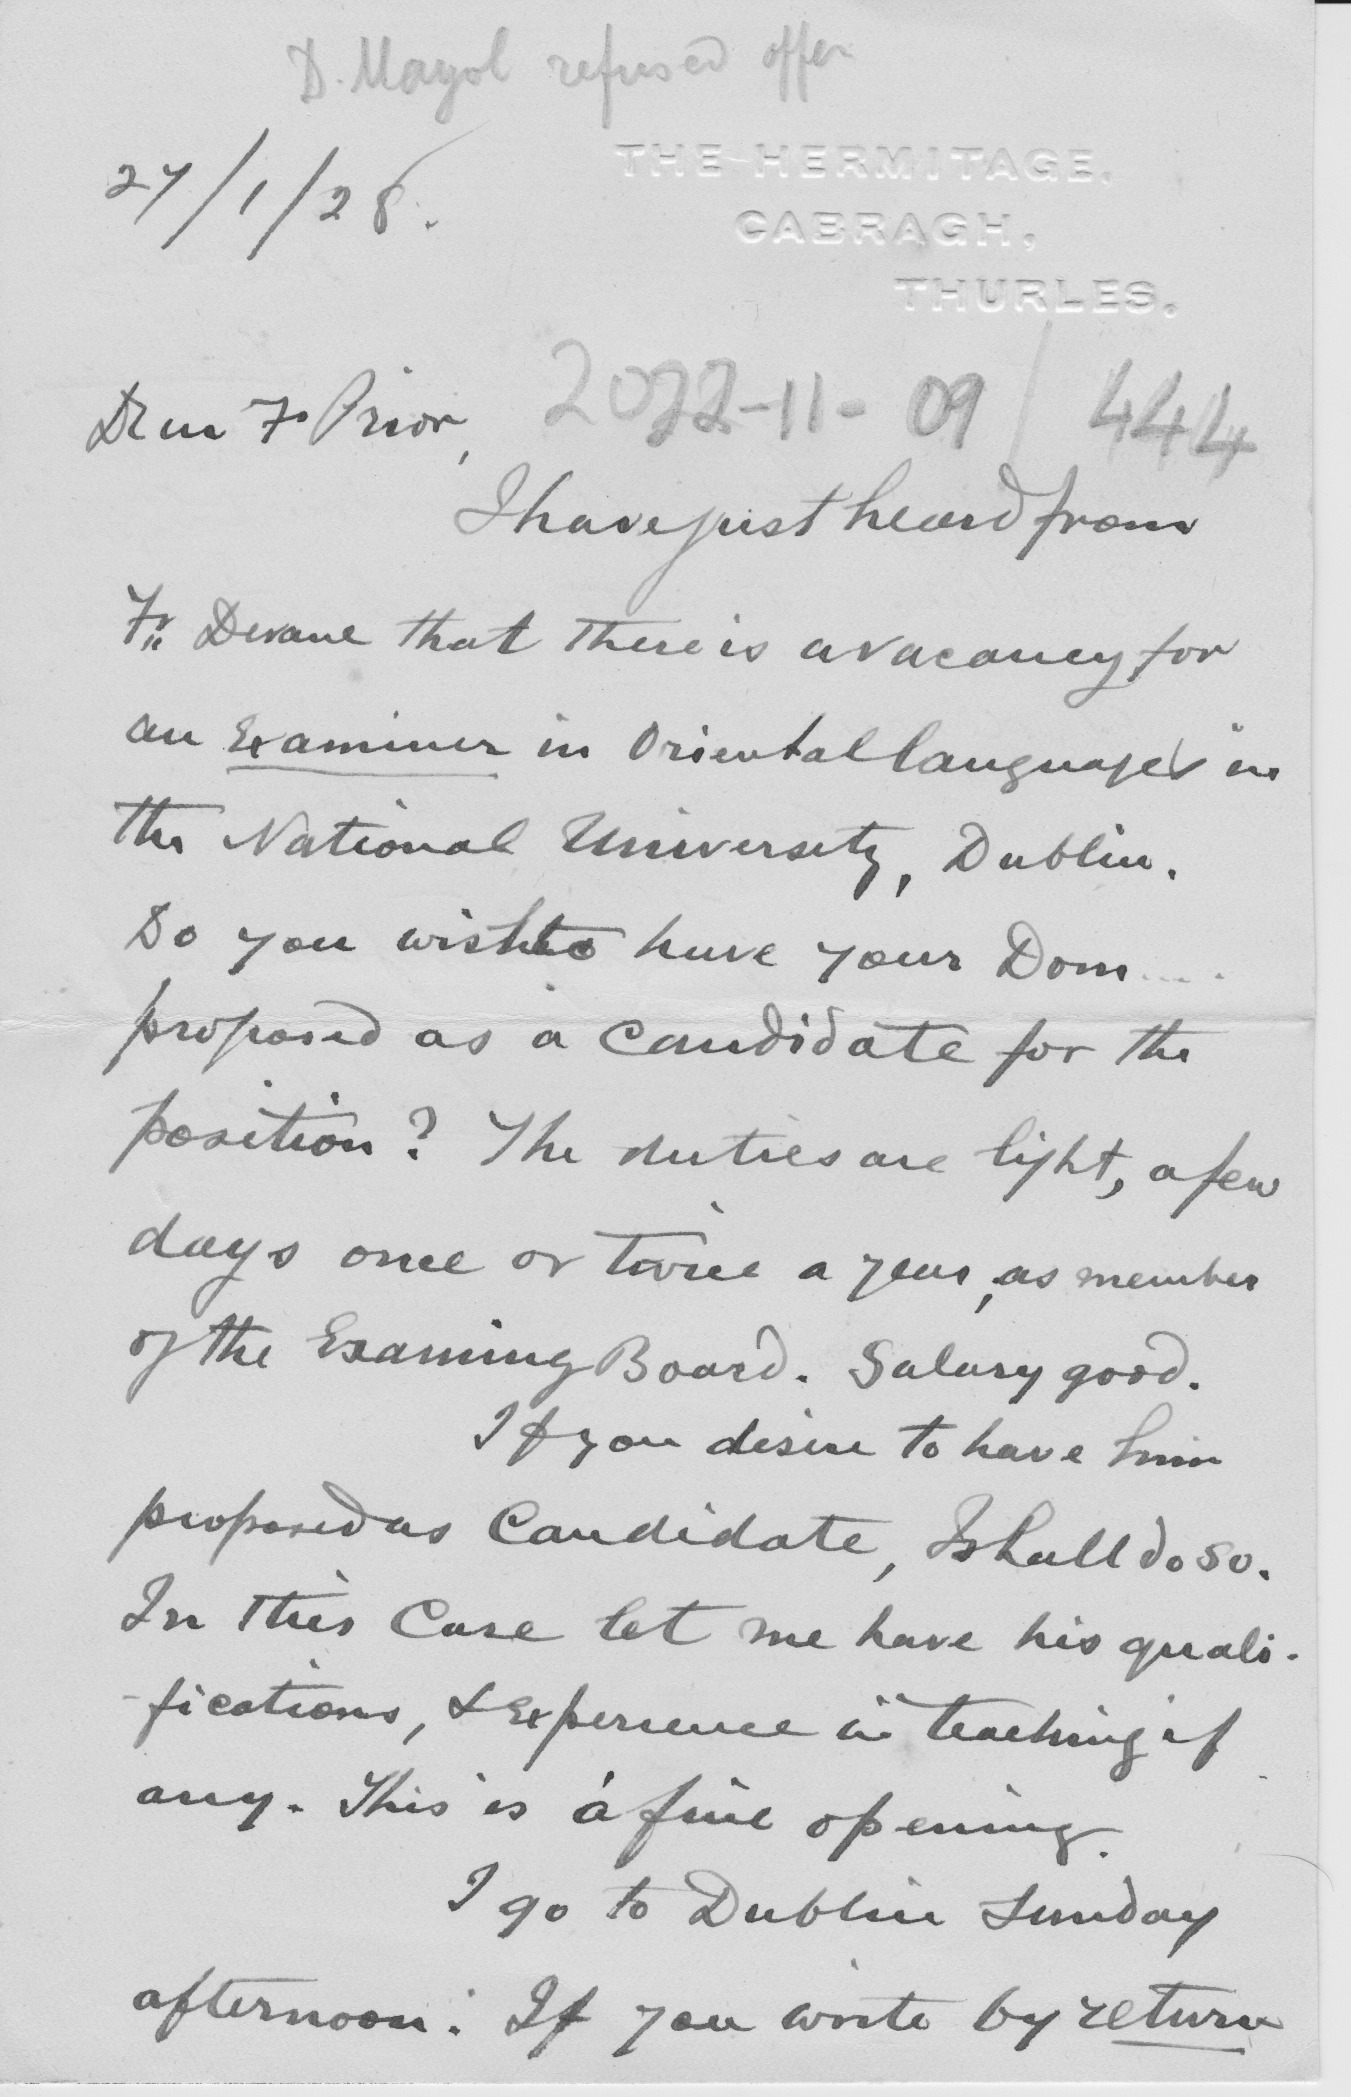 D. Mayol refused offer
27/1/28.
THE HERMITAGE,
CABRAGH,
THURLES.
Dear Fr Prior,
2022-11-09/444
I have just heard from
Fr. Devane that there is a vacancy for
an Examiner in Oriental languages in
the National University, Dublin.
Do you wish to have your Dom ....
proposed as a candidate for the
position? The duties are light, a few
days once or twice a year, as member
of the Examing Board. Salary good.
If you desire to have him
proposed as Candidate, I shall do so.
In this Case let me have his quali-
-fications, & Experience in teaching if
any. This is a fine opening.
I go to Dublin Sunday
afternoon. If you write by return